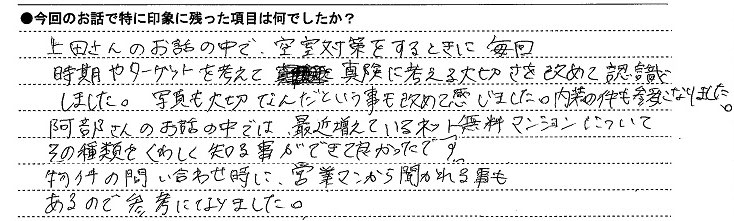 ●今回のお話で特に印象に残った項目は何でしたか？
上田さんのお話の中で、空室対策をするときに毎回
時期やターゲットを考えて真険に考える大切さを改めて認識
しました。写真も大切なんだという事も改めて感じました。内装の件も参考になりました。
阿部さんのお話の中では、最近増えているネット無料マンションについて
その種類をくわしく知る事ができて良かったです。
物件の問い合わせ時に、営業マンから聞かれる事も
あるので参考になりました。